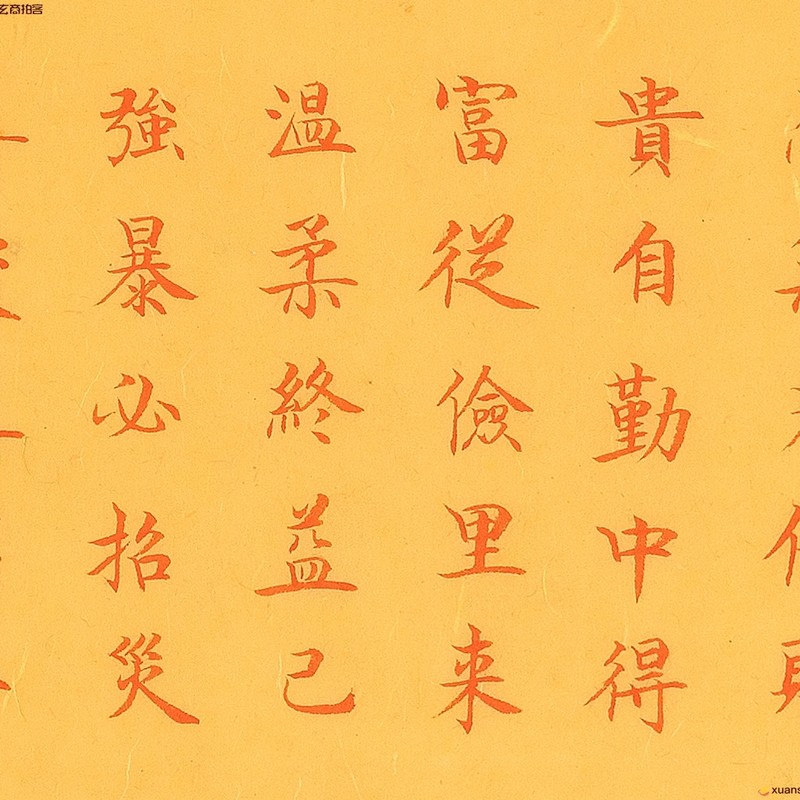 貴自勤中得
富從儉里来
温柔終益己
強暴必招災
玄商拍客
xuans